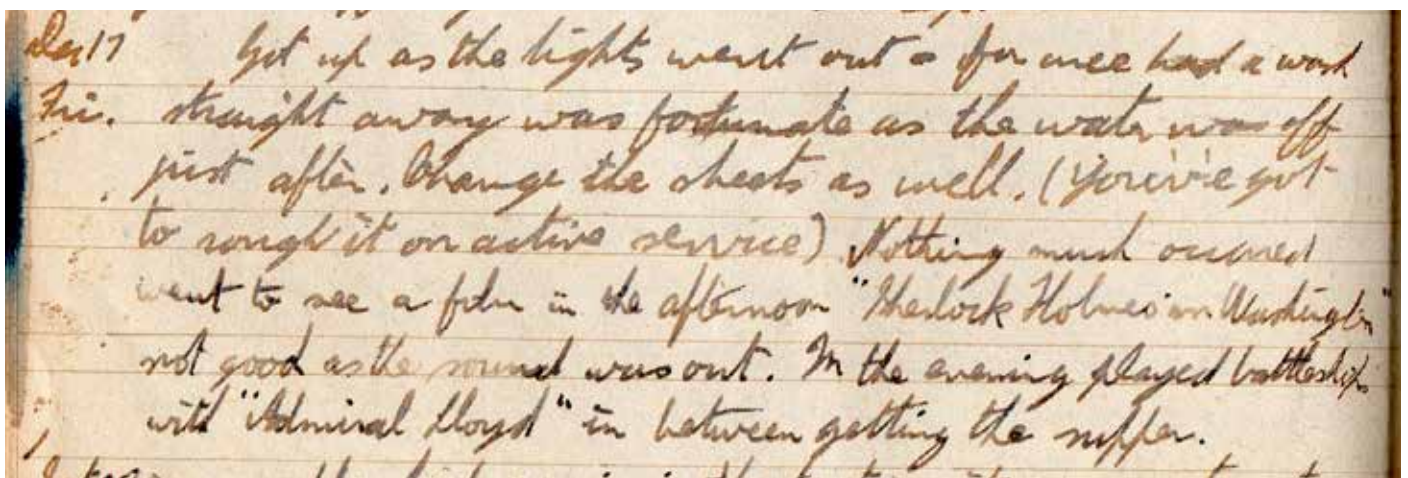 Dec 17 Got up as the lights went out & for once had a wash
Fri. straight away was fortunate as the water was off
just after. Change the sheets as well. (You've got
to rough it on active service) Nothing much occured
went to see a film in the afternoon "Sherlock Holmes in Washington"
not good as the sound was out. In the evening played battleships
with "Admiral Lloyd" in between getting the supper.